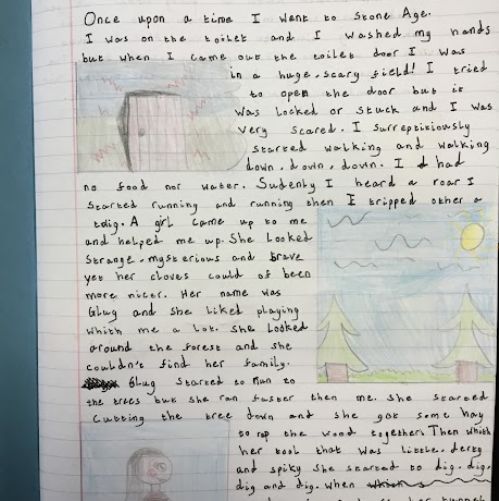 Once upon a time I went to Stone Age.
I was on the toilet and I washed my hands
but when I came out the toilet door I was
in a huge, scary field! I tried
to open the door but it
was locked or stuck and I was
very scared. I surreptitiously
started walking and walking
down, down, down. I had
no food nor water. Sudenly I heard a roar I
started running and running then I tripped other a
twig. A girl came up to me
and helped me up. She looked
strange, mysterious and brave
yet her cloves could of been
more nicer. Her name was
Glug and she liked playing
whith me a lot. She looked
around the forest and she
couldn't find her family.
Glug started to run to
the trees but she ran faster then me. She started
cutting the tree down and she got some hay
to rop the wood together. Then whith
her tool that was little, derty
and spiky she started to dig, dig,
dig and dig. When